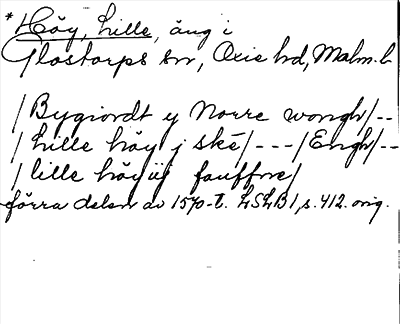 *Höy, Lille, äng i
Glostorps sn, Oxie hd, Malm. l.
/Bygiordt y Norre wongh/--
/Lille höy j ske/---/Engh/--
/lille höy iij fauffne/
förra delen av 1570-t. LSLB1, s. 412. orig.